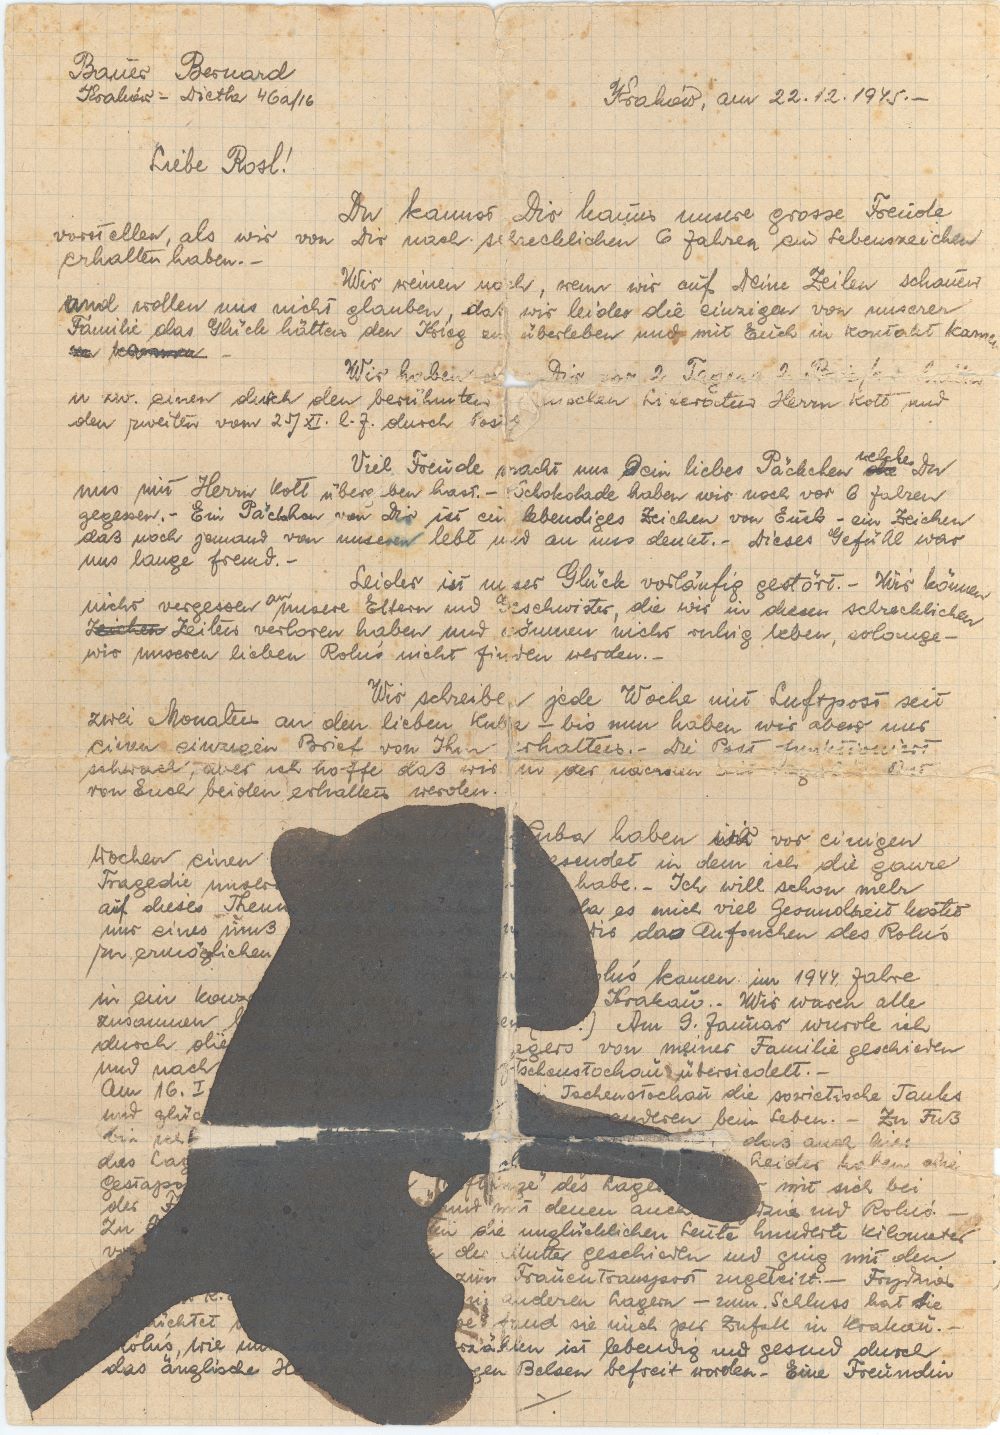 Bauer Bernard
Kraków - Dietla 46a/16
Kraków, am 22.12.1945.-
Liebe Rosl!
Du kannst Dir kaum unsere grosse Freude
vorstellen, als wir von Dir nach schrecklichen 6 Jahren ein Lebenszeichen
erhalten haben.-
Wir weinen noch, wenn wir auf Deine Zeilen schauen
und wollen uns nicht glauben, das wir leider die einzigen von unserer
Familie das Glück hatten den Krieg überleben und mit Euch in Kontakt
Wir haben Dir vor 2 Tagen 2 Briefe
u zw. einen durch den berühmten Herrn Kott und
den zweiten vom 25/XI. l.J. durch
Viel Freude macht uns Dein liebes Päckchen welches Du
uns mit Herrn Kott übergeben hast.- Schokolade haben wir noch vor 6 Jahren
gegessen.- Ein Päckchen von Dir ist ein lebendiges Zeichen von Euch - ein Zeichen
daß noch jemand von unseren lebt und an uns denkt.- Dieses Gefühl war
uns lange fremd.-
Leider ist unser Glück vorläufig gestört.- Wir können
nicht vergessen an unsere Eltern und Geschwister, die wir in diesen schrecklichen
Zeichen Zeiten verloren haben und können nicht ruhig leben, solange-
wir unseren lieben Roluś nicht finden werden.-
Wir schreiben jede Woche mit Luftpost seit
zwei Monaten an den lieben Kuba - bis nun haben wir aber nur
einen einzigen Brief von Ihm erhalten.- Die Post funktioniert
schwach, aber ich hoffe daß wir in der nächsten
von Euch beiden erhalten werden.
Kuba haben wir vor einigen
Wochen einen gesendet in dem ich die ganze
Tragedie unserer habe.- Ich will schon mehr
auf dieses Them da es mich viel Gesundheit kostet
nur eines muß Dir das Aufsuchen des Roluś
zu ermöglichen
luś kamen im 1944 Jahre
in ein Konz Krakau.- Wir waren alle
zusammen Am 9. Januar wurde ich
durch die agers von meiner Familie geschieden
und nach Tschenstochau übersiedelt.-
Am 16. I in Tschenstochau die sowietische Tanks
und glüc anderen beim Leben.- Zu Fuß
bin ich daß auch hier
das Lag Leider haben die
Gestapo des Lager mit sich bei
der und mit denen auch und Roluś.-
Zu die unglücklichen Leute hunderte Kilometer
der Mutter geschieden und ging mit den
zum Frauentransport zugeteilt.- Frydzia
anderen Lagern - zum Schluss hat sie
fand sie mich per Zufall in Krakau.-
Roluś, wie erzählen ist lebendig und gesund durch
das änglische He gen Belsen befreit worden.- Eine Freundin